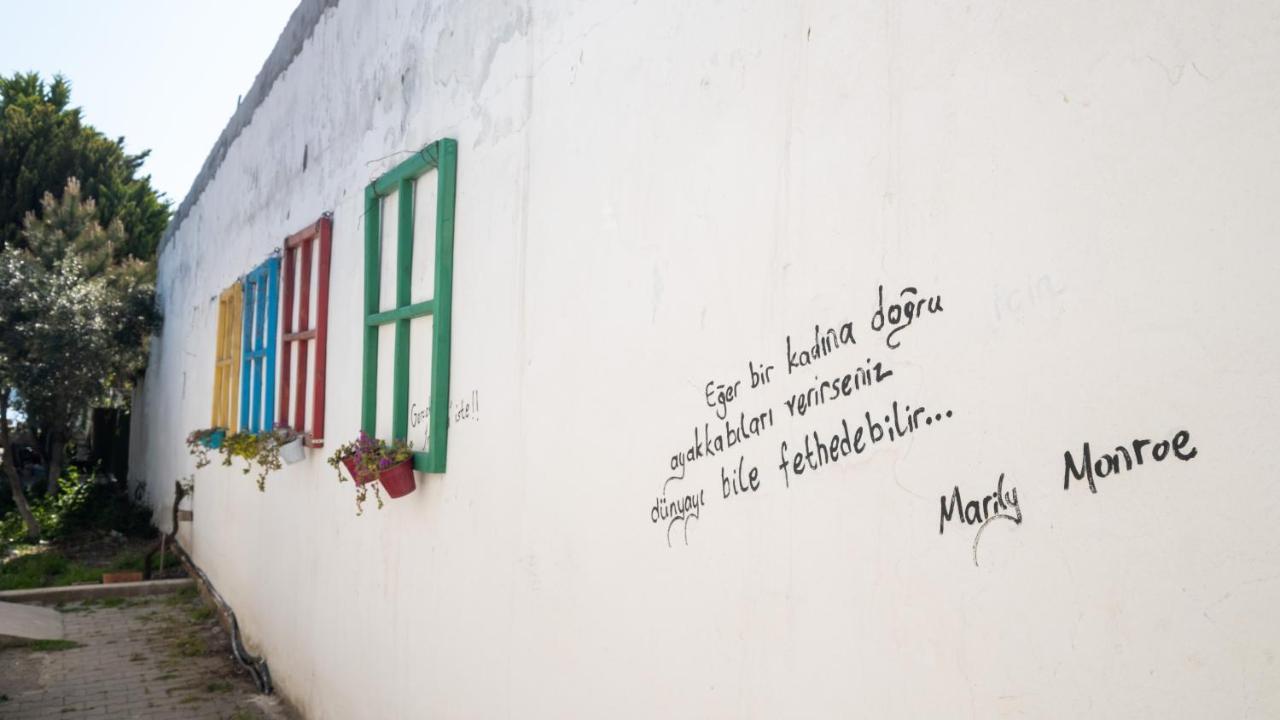 Eğer bir kadına doğru
ayakkabıları verirseniz
dünyayı bile fethedebilir...
Marily Monroe
için
iste!!